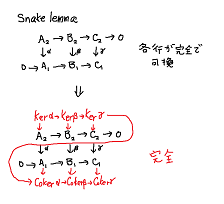 Snake lemma
A₂ → B₂ → C₂ → 0
↓α ↓β ↓γ
0 → A₁ → B₁ → C₁
各行が完全で
可換
⇓
Ker α → Ker β → Ker γ
A₂ → B₂ → C₂ → 0
↓α ↓β ↓γ
0 → A₁ → B₁ → C₁
Coker α → Coker β → Coker γ
完全